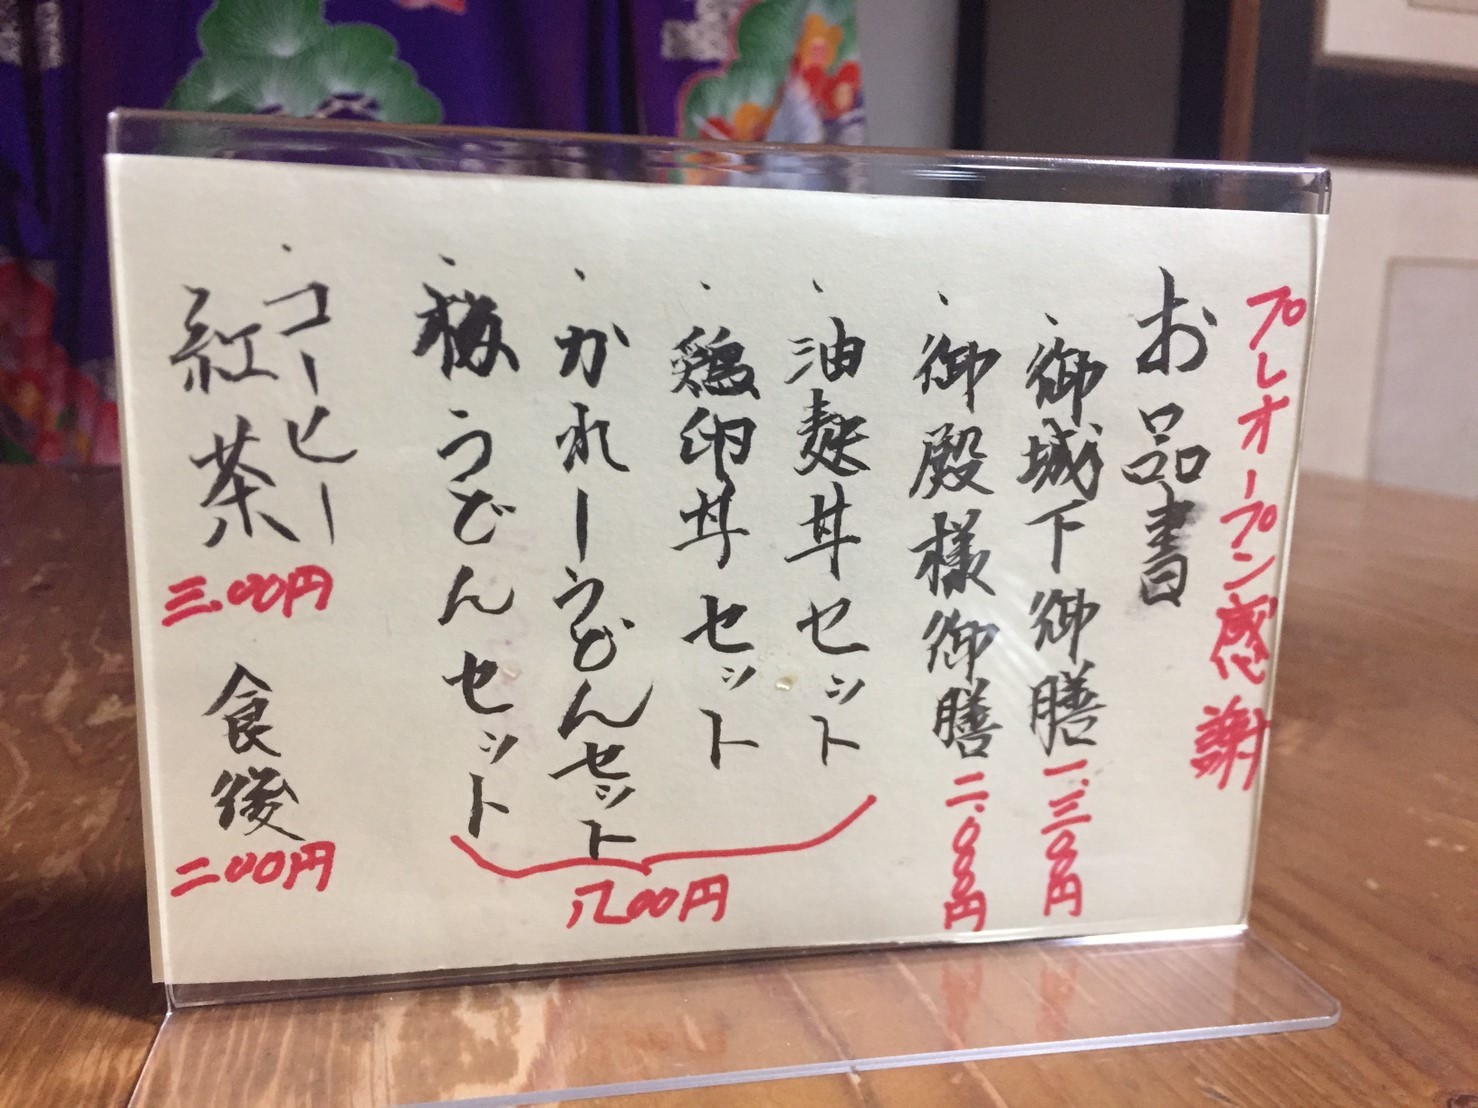 プレオープン感謝
お品書
、御城下御膳 一、三〇〇円
、御殿様御膳 二、〇〇〇円
、油麩丼セット
、鶏卵丼セット
、かれーうどんセット
、梅うどんセット
八〇〇円
、コーヒー
、紅茶 三〇〇円 食後 二〇〇円